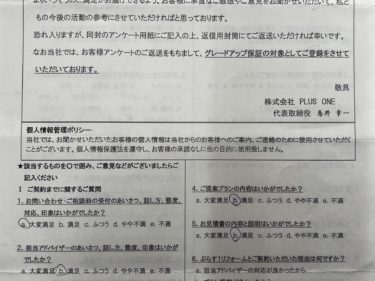 も今後の活動の参考にさせていただければと思っております。
恐れ入りますが、同封のアンケート用紙にご記入の上、返信用封筒にてご返送いただければ幸いです。
なお当社では、お客様アンケートのご返送をもちまして、グレードアップ保証の対象としてご登録をさせて
いただいております。
敬具
株式会社 PLUS ONE
代表取締役
個人情報管理ポリシー
当社では、お聞かせいただいたお客様の個人情報は当社からのお客様へのご案内、ご連絡のために使用させていただく
ことがございます。個人情報保護法を遵守し、お客様の承諾なしに他の目的に使用致しません。
★該当するものを○で囲み、ご意見などがございましたら
ご記入ください
Ⅰ ご契約までに関するご質問
1. お問い合わせ・ご相談時の受付のあいさつ、話し方、態度、
対応、印象はいかがでしたか?
a. 大変満足 b. 満足 c. ふつう d. やや不満 e. 不満
2. 担当アドバイザーのあいさつ、話し方、態度、印象はいかが
でしたか?
a. 大変満足 b. 満足 c. ふつう d. やや不満 e. 不満
4. ご提案プランの内容はいかがでしたか?
a. 大変満足 b. 満足 c. ふつう d. やや不満
5. お見積書の内容と説明はいかがでしたか?
a. 大変満足 b. 満足 c. ふつう d. やや不満
6. ぷらす1リフォームとご契約いただいた理由は何ですか?
a. 担当アドバイザーの対応が良かったから